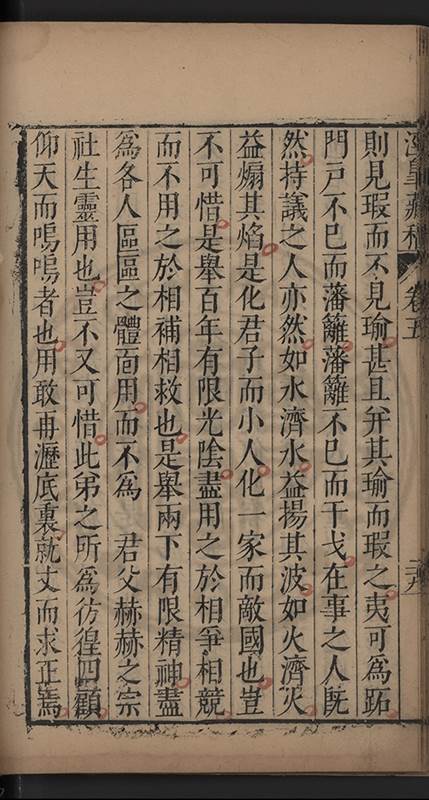 涇臯藏稿 卷五
則見瑕而不見瑜甚且并其瑜而瑕之夷可爲跖
門戸不已而藩籬藩籬不已而干戈在事之人旣
然持議之人亦然如水濟水益揚其波如火濟火
益煽其焰是化君子而小人化一家而敵國也豈
不可惜是舉百年有限光陰盡用之於相爭相競
而不用之於相補相救也是舉兩下有限精神盡
爲各人區區之體面用而不爲 君父赫赫之宗
社生靈用也豈不又可惜此弟之所爲彷徨四顧
仰天而嗚嗚者也用敢再瀝底裏就丈而求正焉